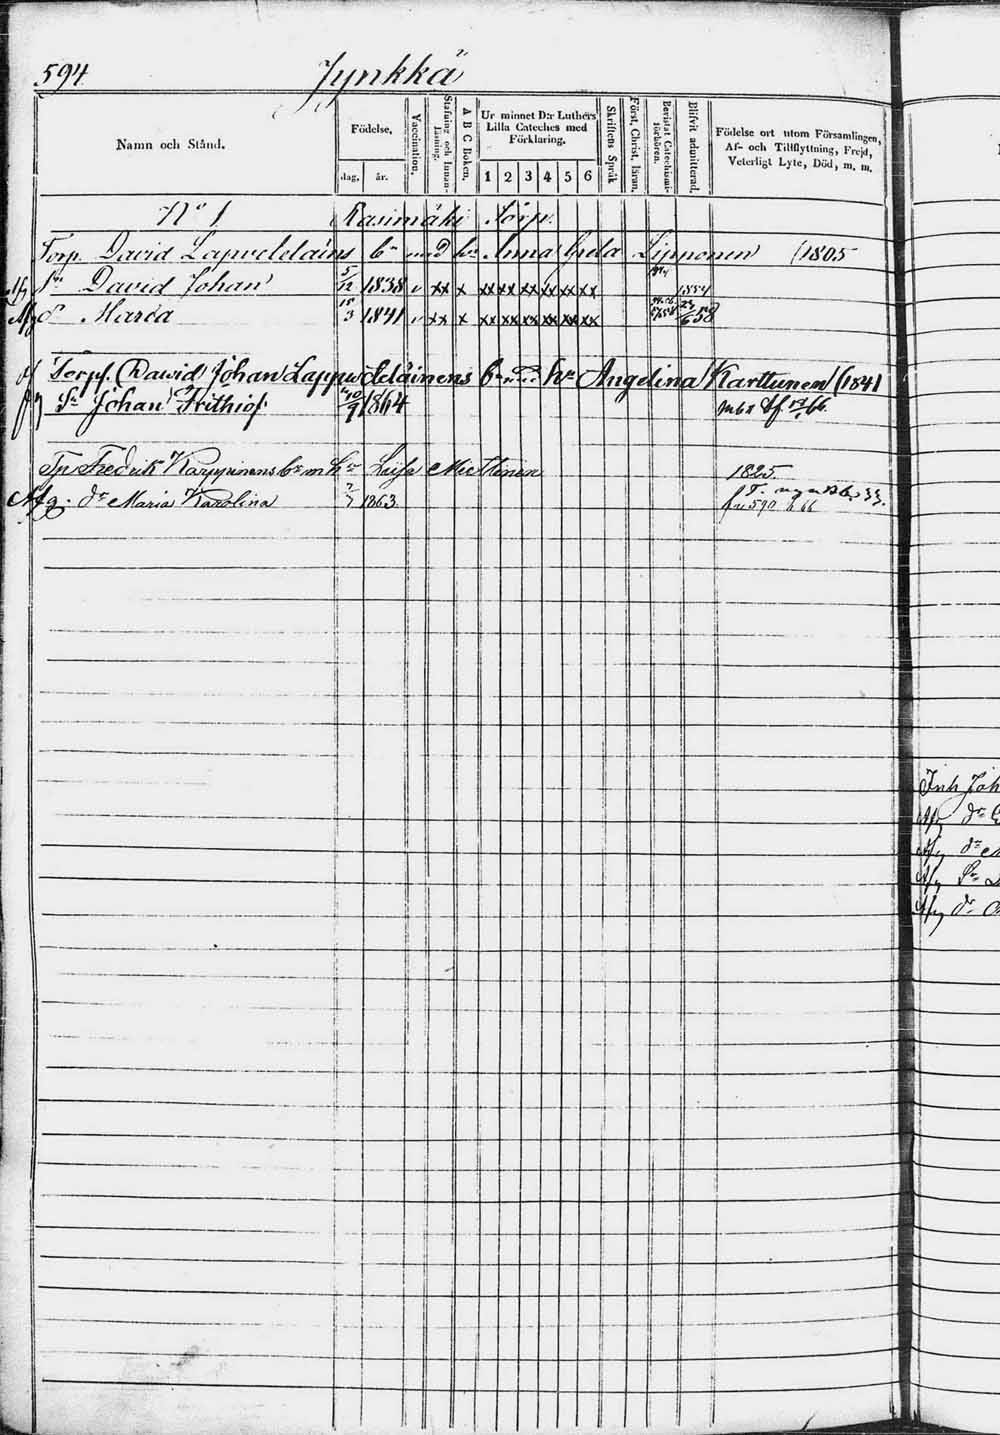 594 Jynkkä
Namn och Stånd.
Födelse,
dag, år.
Vaccination,
Stafning och Innan-Läsning.
A B C Boken,
Ur minnet D:r Luthers Lilla Cateches med Förklaring.
1 2 3 4 5 6
Skriftens Språk
Först. Christ. läran,
Bevistat Catechismi-förhören.
Blifvit admitterad.
Födelse ort utom Församlingen, Af- och Tillflyttning, Frejd, Veterligt Lyte, Död, m. m.
N:o 1 Rasimäki Torp.
Torp. David Lapveteläins b:n med h:u Anna Greta Lipponen (1805
Afg S:n David Johan 5/12 1838 v xx x xx xx xx xx xx xx 1854
Afg d Maria 15/3 1841 v xx x xx xx xx xx xx xx 23/6 58
Torpf. David Johan Lappveteläinens b:n med h:u Angelina Karttunen (1841
S:n Johan Frithiof 10/9 1864
Fredrik Karppinens b:n m h:u Lisa Miettinen 1825.
Afg. d:r Maria Karolina 1863. fr 590 66
Inh Joh
Afg d:r
Afg d:r
Afg S:n
Afg d:r